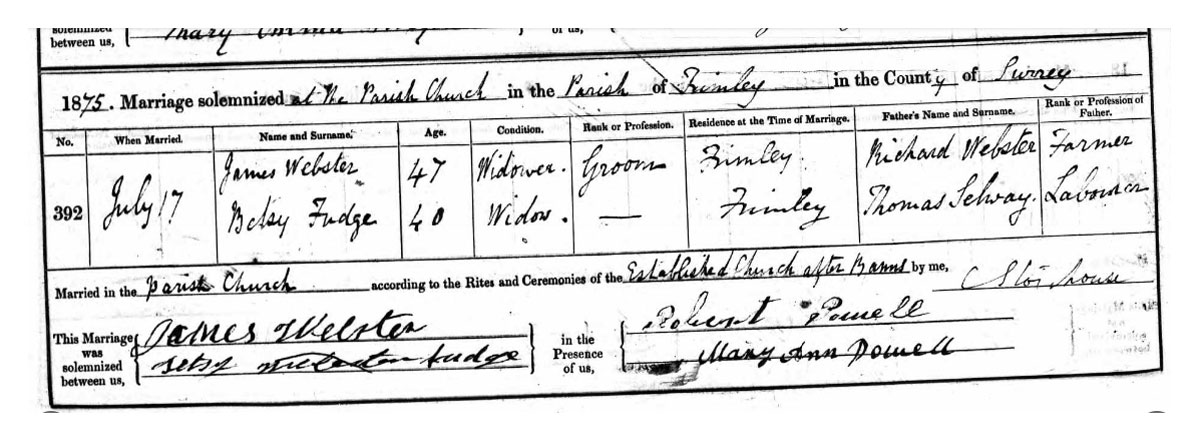 solemnized between us,
Mary Emma
of us,
1875. Marriage solemnized at the Parish Church in the Parish of Frimley in the County of Surrey
No. When Married. Name and Surname. Age. Condition. Rank or Profession. Residence at the Time of Marriage. Father's Name and Surname. Rank or Profession of Father.
392 July 17 James Webster 47 Widower. Groom Frimley Richard Webster Farmer
Betsy Fudge 40 Widow. — Frimley Thomas Selway. Labourer
Married in the Parish Church according to the Rites and Ceremonies of the Established Church after Banns by me,
This Marriage was solemnized between us,
James Webster
Betsy Fudge
in the Presence of us,
Robert Powell
Mary Ann Powell